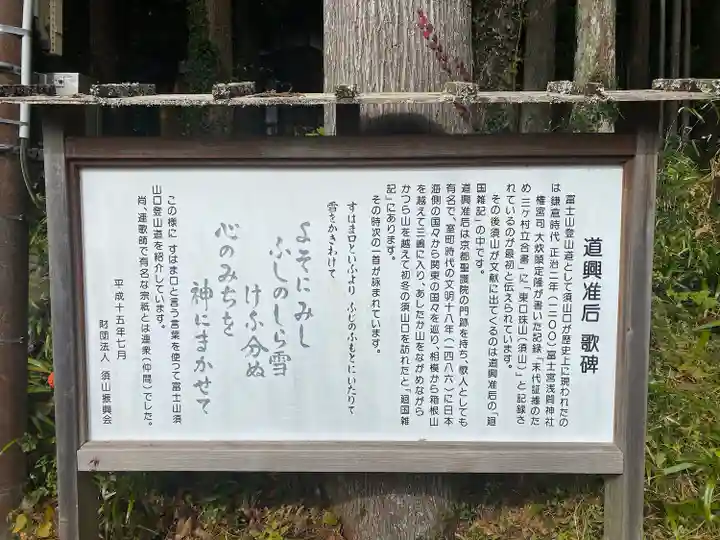 道興准后 歌碑
富士山登山道として須山口が歴史上に現われたの
は鎌倉時代 正治二年(一二〇〇)富士宮浅間神社
権宮司 大炊顕定隆が書いた記録「末代証拠のた
め三ヶ村立合書」に「東口珠山(須山)」と記録さ
れているのが最初と伝えられています。
その後須山が文献に出てくるのは道興准后の「廻
国雑記」の中です。
道興准后は京都聖護院の門跡を持ち、歌人としても
有名で、室町時代の文明十八年(一四八六)に日本
海側の国々から関東の国々を巡り、相模から箱根山
を越えて三嶋に入り、あしたか山をながめながら
かつら山を越えて初冬の須山口を訪れたと「廻国雑
記」にあります。
その時次の一首が詠まれています。
すはま口といふより ふじのふもとにいたりて
雪をかきわけて
よそにみし
ふしのしら雪
けふ分ぬ
心のみちを
神にまかせて
この様に すはま口と言う言葉を使つて富士山須
山口登山道を紹介しています。
尚、連歌師で有名な宗祇とは連衆(仲間)でした。
平成十五年七月
財団法人 須山振興会